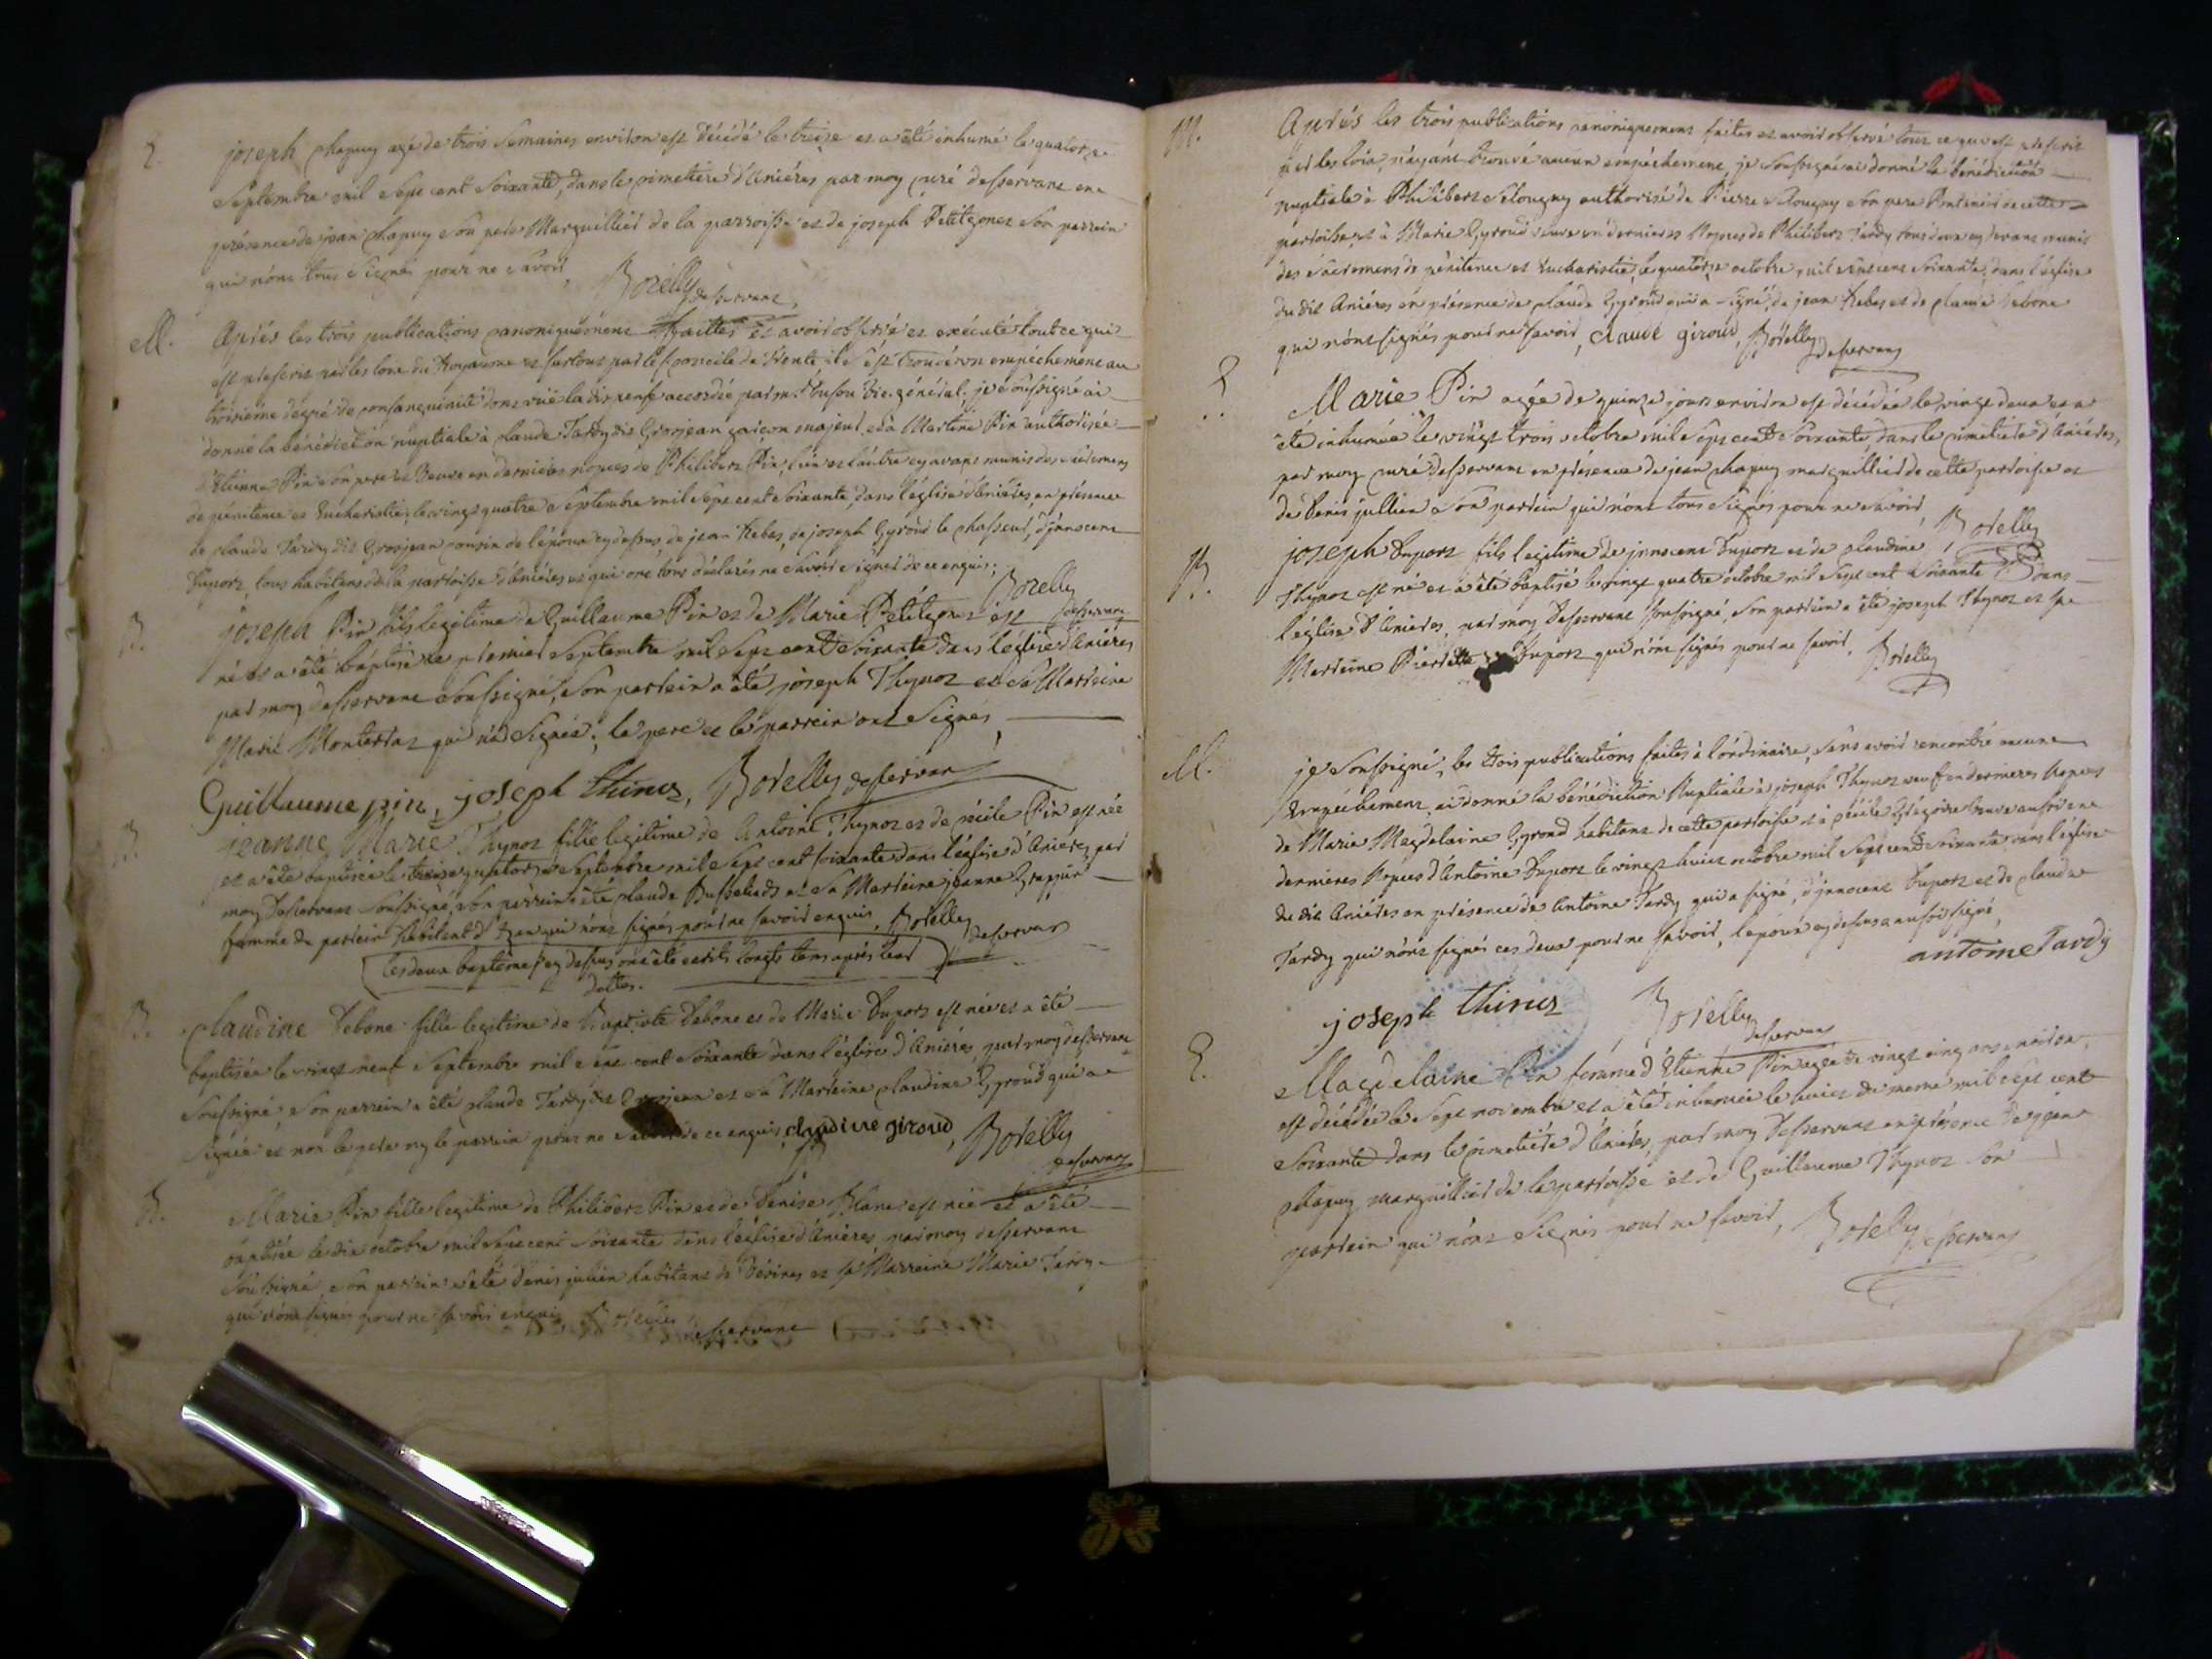 E.
joseph chapuy agé de trois semaines environ est décédé le treize et a été inhumé le quatorze
septembre mil sept cent soixante, dans le cimetiere d'Aniéres par moy curé desservant en
présence de jean chapuy son pere Marguillier de la parroisse et de joseph Petitgonet son parrein
qui n'ont tous signés pour ne savoir, Borelly desservant
M.
Après les trois publications canoniquement faittes et avoir observé et exécuté tout ce qui
est prescrit par les loix du Royaume et surtout par le s. concile de trente, il s'est trouvé un empéchement au
troisieme dégré de consanguinité dont vüe la dispense accordée par m. vic. général; je soussigné ai
donné la bénédiction nuptiale à claude Tardy dit Grosjean garçon majeur, et à Martine Pin authorisée
d'Etienne Pin son pere et veuve en dernieres noces de Philibert Pin, l'un et l'autre cy avant munis des sacremens
de pénitence et Eucharistie, le vingt quatre septembre mil sept cent soixante, dans l'église d'Aniéres, en présence
de claude Tardy dit Grosjean cousin de l'époux cy dessus, de jean Rebes, de joseph Gyroud le chasseur, d'jnnocent
Duport, tous habitans de la parroisse d'Aniéres et qui ont tous déclarés ne savoir signer de ce enquis;
Borelly desservant
B.
joseph Pin fils legitime de Guillaume Pin et de Marie Petitgonet est
né et a été baptisé le premier septembre mil sept cent soixante dans l'église d'Aniéres
par moy desservant soussigné, son parrein a été joseph Thynot et sa Marreine
Marie Montertaz qui n'a signée; le pere et le parrein ont signés,
Guillaume pin, joseph thinot, Borelly desservant
B.
jeanne Marie Thynot fille legitime de Antoine Thynot et de cécile Pin est née
et a été baptisée le quatorze septembre mil sept cent soixante dans l'église d'Aniéres, par
moy desservant soussigné, son parrein a été claude et sa Marreine jeanne
femme du parrein habitant d' qui n'ont signés pour ne savoir enquis, Borelly desservant
les deux baptêmes cy dessus ont été ecrits longts tems après leur
dattes.
B.
claudine Debone fille legitime de Baptiste Debone et de Marie Duport est née et a été
baptisée le vingt neuf septembre mil sept cent soixante dans l'église d'Aniéres, par moy desservant
soussigné, son parrein a été claude Tardy dit Grosjean et sa Marreine claudine Gyroud qui a
signée et non le pere ny le parrein pour ne savoir de ce enquis, claudine giroud, Borelly
desservant
B.
Marie Pin fille legitime de Philibert Pin et de Denise Blanc est née et a été
baptisée le dix octobre mil sept cent soixante dans l'église d'Aniéres, par moy desservant
soussigné, son parrein a été Denis julien habitant de et sa Marreine Marie Tardy
qui n'ont signés pour ne savoir enquis, Borelly
desservant
M.
Après les trois publications canoniquement faites et avoir observé tout ce qui est prescrit
par les loix, n'ayant trouvé aucun empéchement, je soussigné ai donné la bénédiction
nuptiale à Philibert authorisé de Pierre son pere de cette
parroisse, et à Marie Gyroud veuve en dernieres Nopces de Philibert Tardy tous deux cy devant munis
des sacremens de pénitence et Eucharistie, le quatorze octobre mil sept cent soixante, dans l'église
du dit Aniéres en présence de claude Gyroud qui a signé, de jean Rebes et de claude Debone
qui n'ont signés pour ne savoir, claude giroud, Borelly desservant
E.
Marie Pin agée de quinze jours environ est décédée le vingt deux et a
été inhumée le vingt trois octobre mil sept cent soixante dans le cimetiere d'Aniéres,
par moy curé desservant en présence de jean chapuy marguillier de cette parroisse et
de Denis jullien son parrein qui n'ont tous signés pour ne savoir, Borelly
B.
joseph Duport fils legitime de jnnocent Duport et de claudine
Thynot est né et a été baptisé le vingt quatre octobre mil sept cent soixante dans
l'église d'Aniéres, par moy desservant soussigné, son parrein a été joseph Thynot et sa
Marreine Pierrette Duport qui n'ont signés pour ne savoir. Borelly
M.
je soussigné, les trois publications faites à l'ordinaire, sans avoir rencontré aucun
Empéchement, ai donné la bénédiction Nuptiale à joseph Thynot veuf en dernieres Nopces
de Marie Magdelaine Gyroud habitant de cette parroisse et à cécile Grégoire veuve aussi en
dernieres Nopces d'Antoine Duport le vingt huit octobre mil sept cent soixante dans l'église
du dit Aniéres en présence de Antoine Tardy qui a signé, d'jnnocent Duport et de claude
Tardy qui n'ont signés ces deux pour ne savoir, l'époux cy dessus a aussi signé,
antoine Tardy
joseph thinot Borelly
desservant
E.
Magdelaine Pin femme d'Etienne Pin agée de vingt cinq ans environ
est décédée le sept novembre et a été inhumée le huit du meme mil sept cent
soixante dans le cimetiere d'Aniéres, par moy desservant en présence de jean
chapuy marguillier de la parroisse et de Guillaume Thynot son
parrein qui n'ont signés pour ne savoir, Borelly desservant